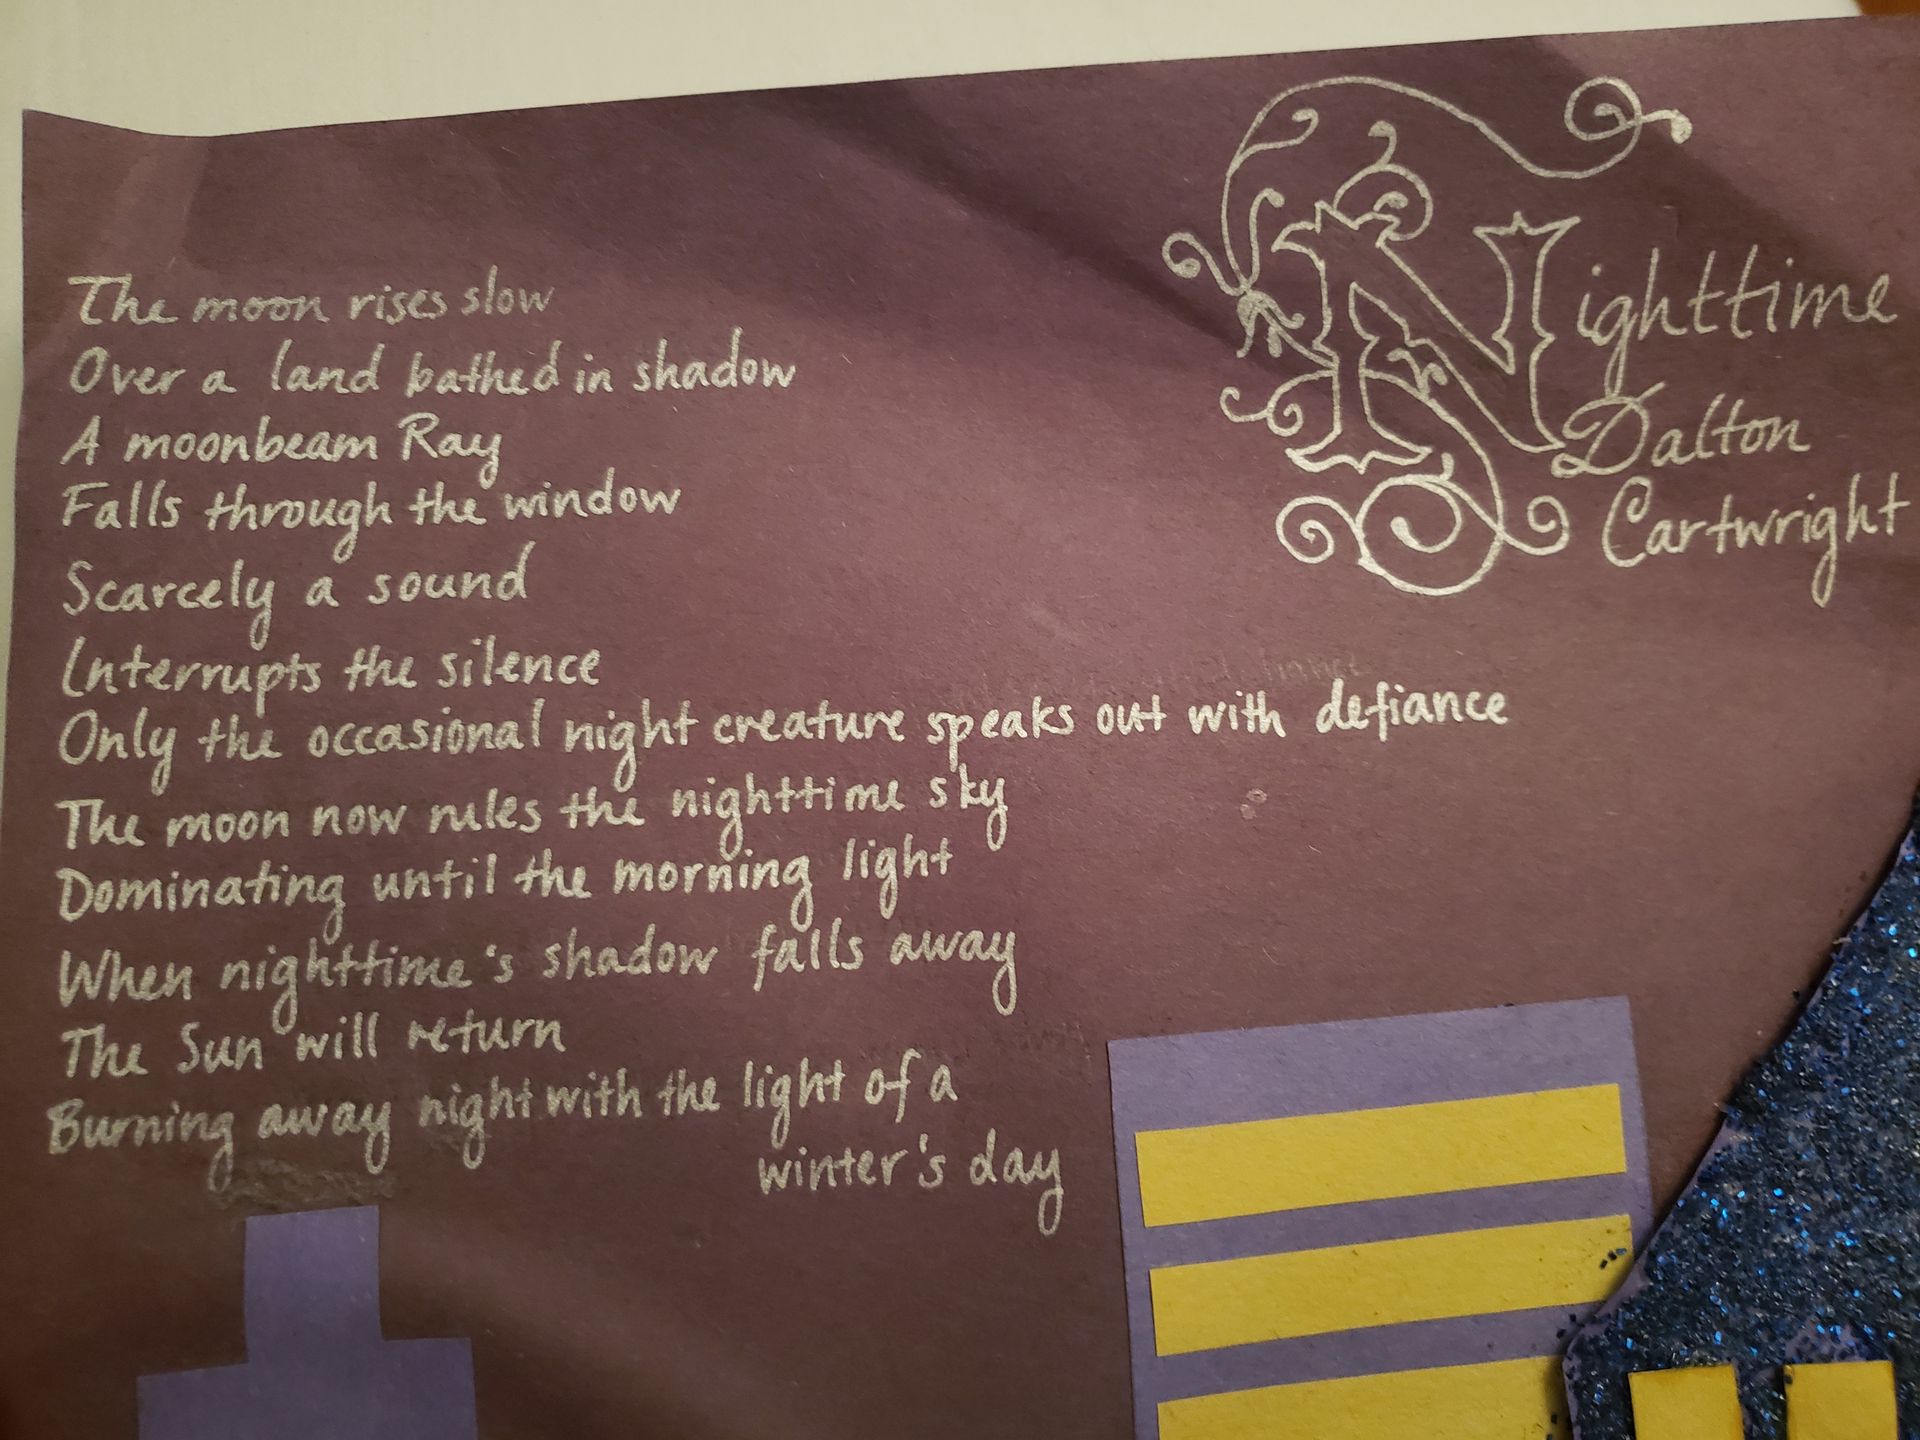 Nighttime
Dalton
Cartwright
The moon rises slow
Over a land bathed in shadow
A moonbeam Ray
Falls through the window
Scarcely a sound
Interrupts the silence
Only the occasional night creature speaks out with defiance
The moon now rules the nighttime sky
Dominating until the morning light
When nighttime's shadow falls away
The Sun will return
Burning away night with the light of a
winter's day